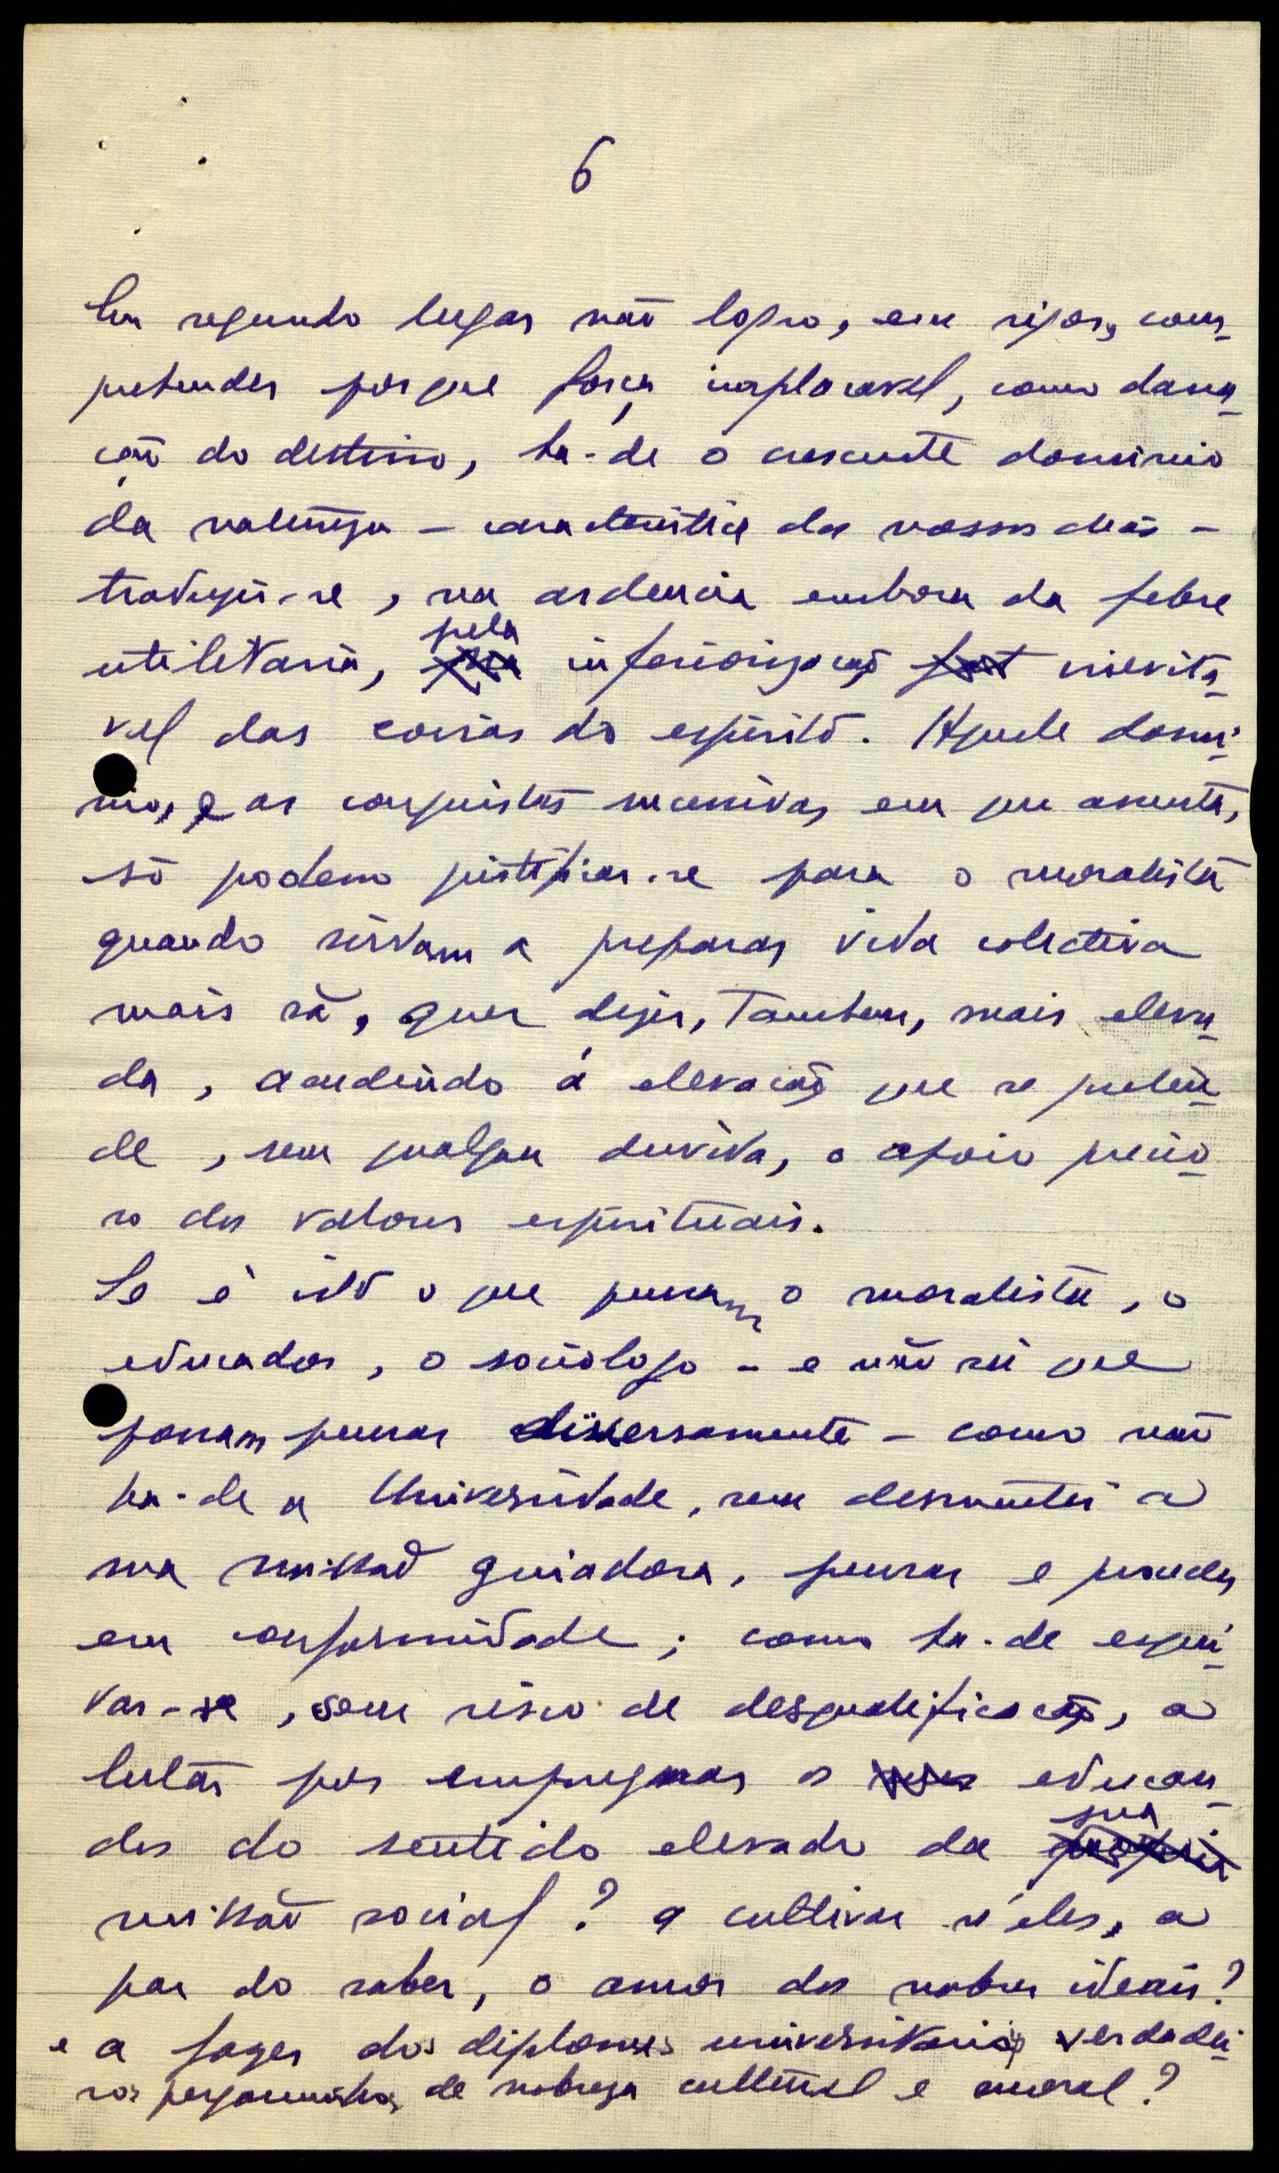 6
Em segundo lugar não logro, em rigor, com-
preender porque força implacavel, como dana-
ção do destino, ha-de o crescente dominio
da natureza – caracteristica dos nossos dias –
traduzir-se, na ardencia embora da febre
utilitaria, pela inferiorização inevita-
vel das coisas do espirito. Aquele domi-
nio, e as conquistas sucessivas em que assenta,
só podem justificar-se para o moralista
quando sirvam a preparar vida colectiva
mais sã, quer dizer, tambem, mais eleva-
da, acudindo á elevação que se preten-
de, sem qualquer duvida, o apoio precio-
so dos valores espirituais.
Se é isto o que pensam o moralista, o
educador, o sociologo – e não sei que
possam pensar diversamente – como não
ha-de a Universidade, sem desmentir a
sua missão guiadora, pensar e proceder
em conformidade; como ha-de esqui-
var-se, sem risco de desqualificação, a
lutar por empregnar os educan-
dos do sentido elevado da sua
missão social? a cultivar n'eles, a
par do saber, o amor dos nobres ideais?
e a fazer dos diplomas universitarios verdadei-
ros pergaminhos de nobreza cultural e moral?